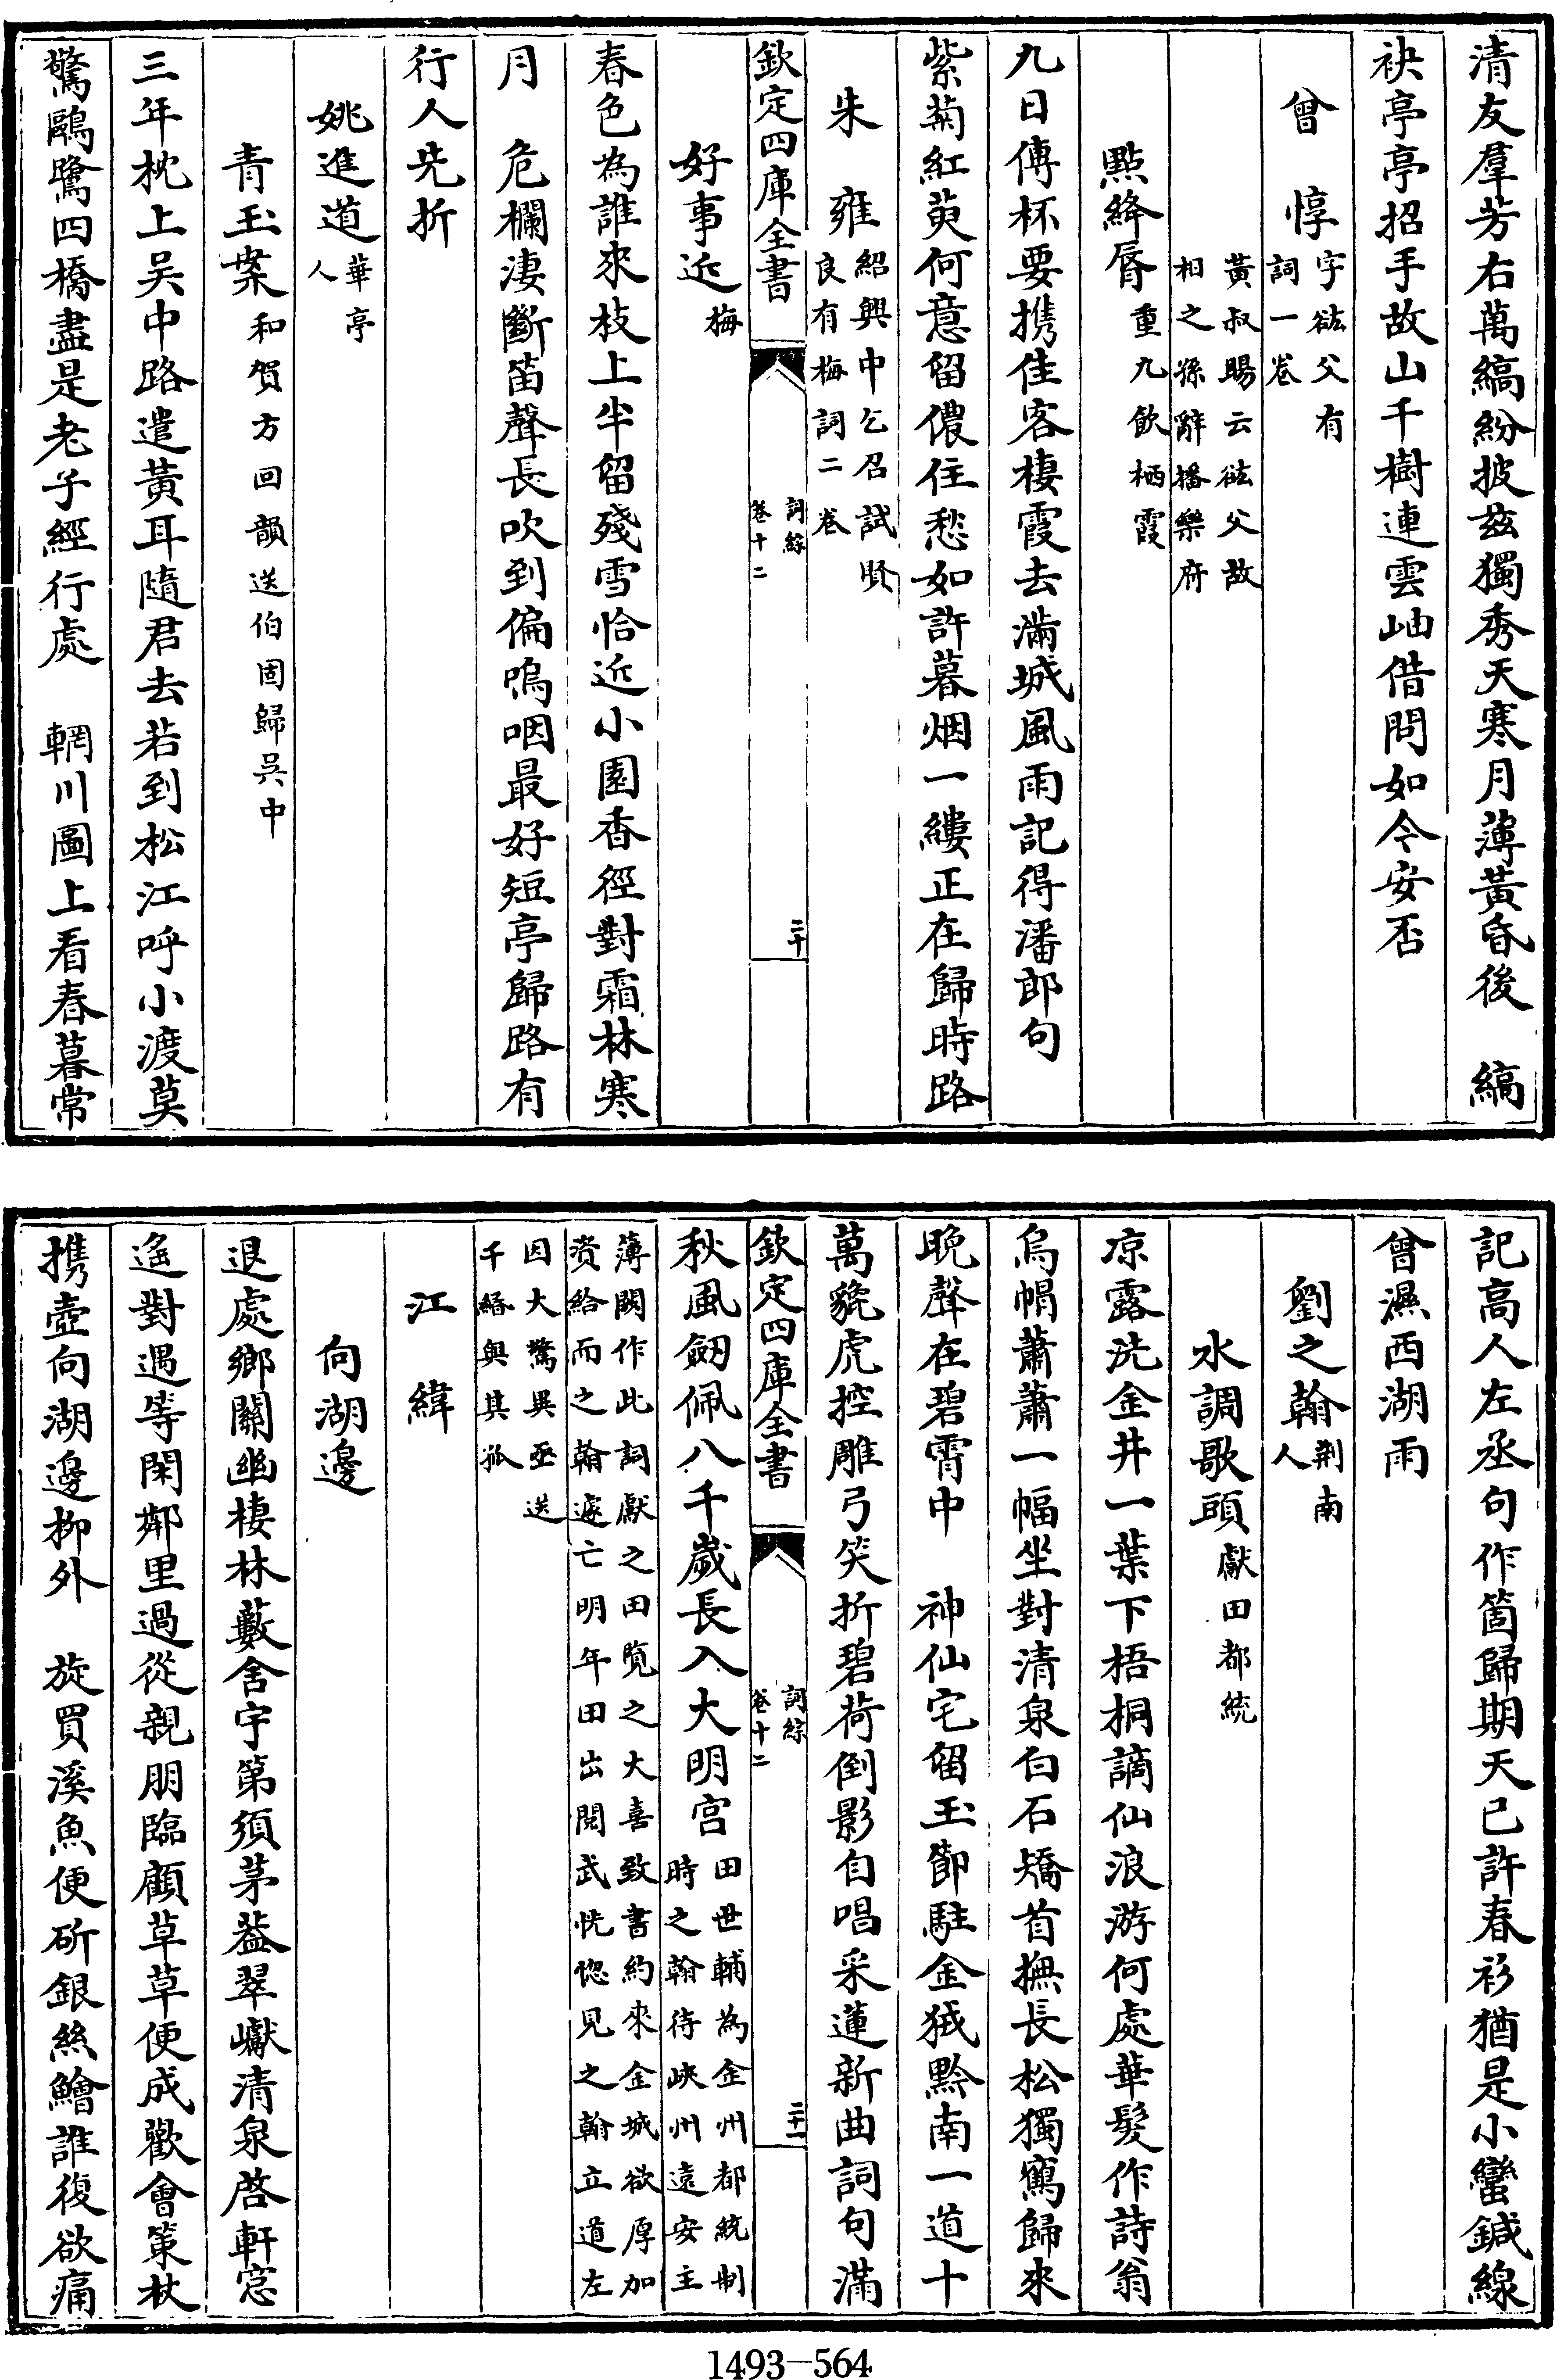 清友羣芳右萬縞紛披兹獨秀天寒月薄黃昏後　縞
袂亭亭招手故山千樹連雲岫借問如今安否
曾　惇字谹父有詞一卷
黃叔暘云谹父故相之孫辭播樂府
點絳脣重九飲栖霞
九日傳杯要携佳客棲霞去滿城風雨記得潘郎句
紫菊紅萸何意留儂住愁如許暮烟一縷正在歸時路
朱　雍紹興中乞召試賢良有梅詞二卷
欽定四庫全書　詞綜卷十二　二十
好事近梅
春色為誰來枝上半留殘雪恰近小園香徑對霜林寒
月　危欄淒斷笛聲長吹到偏嗚咽最好短亭歸路有
行人先折
姚進道華亭人
青玉案和賀方回韻送伯固歸吳中
三年枕上吴中路遣黃耳隨君去若到松江呼小渡莫
驚鷗鷺四橋盡是老子經行處　輞川圖上看春暮常
記高人左丞句作箇歸期天已許春衫猶是小蠻鍼線
曾濕西湖雨
劉之翰荆南人
水調歌頭獻田都統
凉露洗金井一葉下梧桐謫仙浪游何處華髮作詩翁
烏帽蕭蕭一幅坐對清泉白石矯首撫長松獨鶴歸來
晩聲在碧霄中　神仙宅留玉節駐金狨黔南一道十
萬貔虎控雕弓笑折碧荷倒影自唱采蓮新曲詞句滿
欽定四庫全書　詞綜卷十二　二十一
秋風劒佩八千歲長入大明宫田世輔為金州都統制時之翰待峽州遠安主
薄闕作此詞獻之田覧之大喜致書約來金城欲厚加資給而之翰遽亡明年田出閱武恍惚見之翰立道左
因大驚異亟送千緡與其孤
江　緯
向湖邊
退處鄉關幽棲林藪舍宇第須茅葢翠巘清泉啓軒窓
遥對遇等閑鄰里過從親朋臨顧草草便成歡會策杖
携壺向湖邊柳外　旋買溪魚便斫銀絲鱠誰復欲痛
1493—564